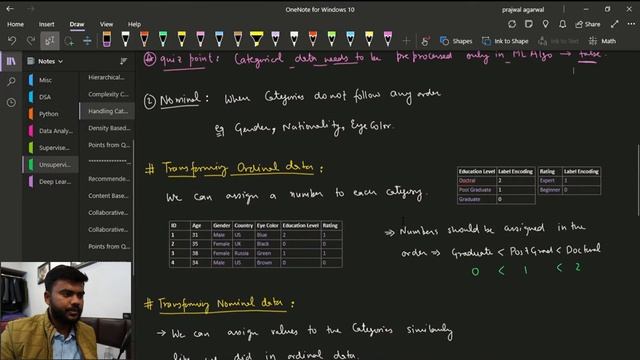 OneNote for Windows 10
prajwal agarwal
File Home Insert Draw View Help
Shapes Ink to Shape Ink to Text Math
Notes
Misc
DSA
Python
Data Analy...
Supervise...
Unsupervi...
Deep Lear...
Hierarchical...
Complexity C...
Handling Cat...
Density Based...
Points from Q...
********************...
Recommende...
Content Base...
Collaborative...
Collaborative...
Points from Q...
quiz point: Categorical data needs to be pre processed only in ML Algo → false.
② Nominal: When Categories do not follow any order
eg Gender, Nationality, Eye Color.
# Transforming Ordinal data:
We can assign a number to each category.
Education Level Label Encoding
Doctral 2
Post Graduate 1
Graduate 0
Rating Label Encoding
Expert 1
Beginner 0
ID Age Gender Country Eye Color Education Level Rating
1 31 Male US Blue 2 1
2 35 Female UK Black 0 0
3 38 Female Russia Green 1 1
4 34 Male US Brown 0 0
⇒ Numbers should be assigned in the
order ⇒ Graduate < Post Grad < Doctoral
0 < 1 < 2
# Transforming Nominal data:
→ We can assign values to the Categories similarly
like we did in ordinal data.